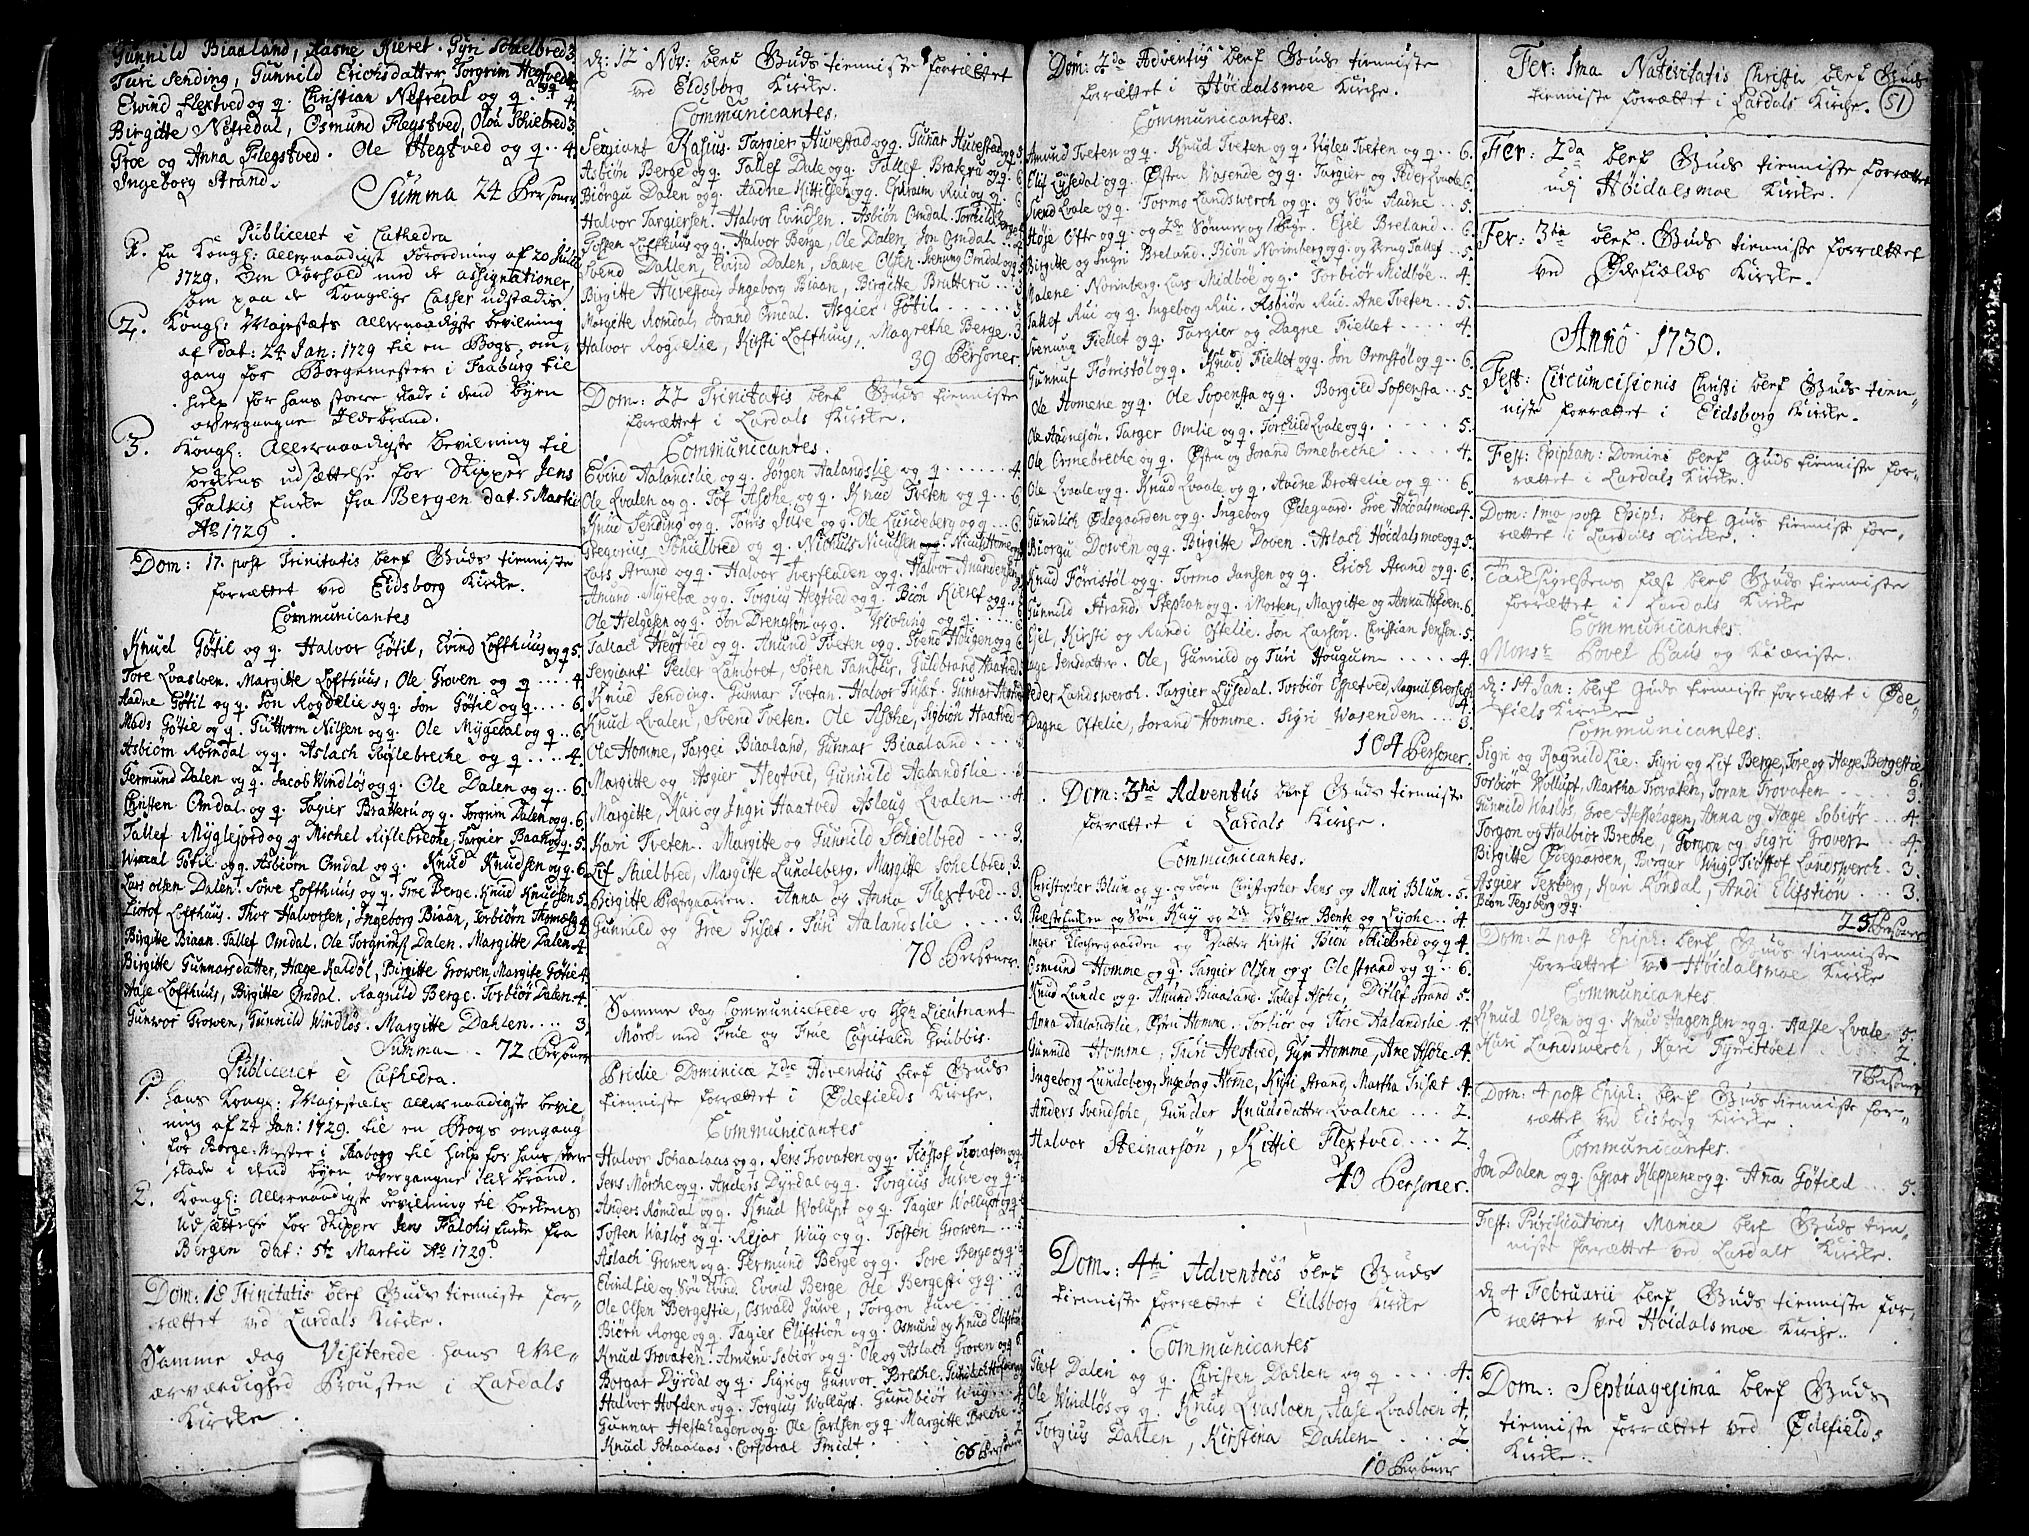 Gunnild Biaaland, Aasne Kieret. Gyri Schielbred 3.
Turi Sending, Gunnild Erichsdatter, Torgrim Hegtved og q.
Ewind Flextved og q. Christian Nefredal og q. 4.
Birgitte Nefredal, Osmund Flegstved, Oloa Schielbred 3.
Groe og Anna Flegstved. Ole Hegtved og q. .. 4.
Ingeborg Strand.
Summa 24 Personer
Publiceret e Cathedra
1. En Kongl: Allernaadigst Forordning af 20 Julii
1729. Om Forhold med de assignationer,
som paa de Kongelige Casser udstædis
2. Kongl: Majestæts Allernaadigste bevilning
af dat: 24 Jan: 1729 til en Bogs om-
gang for Borgemester i Faaburg til
hielp for hans store skade i dend byen
overgangne Ildebrand.
3. Kongl: Allernaadigste bevilning til
bedens udsættelse for Skipper Jens
Falkis Encke fra Bergen dat. 5 Martii
Ao 1729.
Dom: 17. post Trinitatis blef Guds tienniste
forrættet ved Eidsborg Kirke.
Communicantes
Knud Götil og q. Halvor Götil, Evind Lofthuus og q 5.
Tore Lvasloen. Margitte Lofthuus, Ole Groven og q .... 4.
Aadne Götil og q. Jon Rogdelie og q. Jon Götie og q. ... 6.
Mads Götie og q. Guttorm Nilsen og q. Ole Mygedal og q .. 6.
Asbiörn Romdal og q. Aslach Ryslebreche og q .... 4.
Germund Dalen og q. Jacob Windlös og q. Ole Dalen og q. 6
Christen Omdal og q. Tagier Bratterü og q. Torgrim Dalen og q. 6.
Tallef Myglejord og q. Michel Riflebreche, Targier Baan og q. 5.
Wraal Götil og q. Asbiörn Omdal og q. Knud Knudsen og q. 6
Lars olsen Dalen. Söwe Lofthuus og q. Groe Berge. Knud Knudsen 5.
Liotof Lofthuus. Thor Halvorsen, Ingeborg Biaan, Torbiörn Thomesö 4
Birgitte Biaan. Tallef Omdal. Ole Torgrims. Dalen. Margitte Dalen 4
Birgitte Gunnarsdatter, Hæge Kaldöl, Birgitte Growen, Margite Götie 4.
Aase Lofthuus, Birgitte Omdal. Ragnild Berge. Torbiör Dalen 4.
Gunvor Growen, Gunnild Windlös. Margitte Dahlen .... 3.
Summa .. 72 Personer
Publiceret e Cathedra.
1. Hans Kongl. Majestæts Allernaadigste bevil
ning af 24 Jan: 1729. til en Bogs omgang
for Borge Mester i Faaborg til hielp for hans stor
skade i dend byen overgangne ilde brand.
2. Kongl: Allernaadigste bevilning til bedens
udsættelse for Skipper Jens Falchis Encke fra
Bergen dat: 5te Martii Ao 1729.
Dom: 18 Trinitatis blef Guds tienniste for-
rættet ved Lardals Kirke.
Samme dag Visiterede hans Wel-
ærværdighed Prousten i Lardals
Kirke.
d: 12 Nov: blef Guds tienniste forrættet
ved Eidsborg Kirke.
Communicantes.
Sergiant Rasius. Targier Huvestad og q. Gunar Huvestad og q 5
Asbiön Berge og q. Tallef Dale og q. Tallef Brakerü og q. 6
Biörgu Dalen og q. Aadne Kittilsen og q. Ephraim Rui og q. 6
Halvor Targiersen. Halvor Evindsen. Asbiön Omdal. Torchild Berge
Tosten Lofthuus og q. Halvor Berge, Ole Dalen, Jon Omdal
Svend Dallen, Evind Dalen, Saave Olsen. Svenung Omdal og q 5
Birgitte Huvestad, Ingeborg Biaan, Birgitte Brutteru ... 3
Margitte Romdal, Jorand Omdal. Asgier Götil ..... 3
Halvor Rogdelie, Kirsti Lofthuus, Magrethe Berge. 3
39 Personer.
Dom: 22 Trinitatis blef Guds tienniste
forrættet i Lardals Kirke.
Communicantes.
Evind Aalandslie og q. Jörgen Aalandslie og q ...... 4.
Ole Lvalen og q. Tof Aschie og q. Knud Tveten og q .. 6
Knud Sending og q. Torris Juve og q. Ole Lundeberg og q ... 6.
Gregorius Schielbred og q. Nichlus Niculsen Nicul Homme
Lars Strand og q. Halvor Tverfladen og q. Halvor Amundsen
Amund Myrebæ og q. Torgiuy Hegtved og q. Biön Kieret og q.
Ole Helgesen og q. Jon Drengson og q.
Tallach Hegtved og q. Anund Tveten og q.
Sergiant Peder Lambret, Sören Tambur, Gulbrand Haatved
Knud Sending. Gunnar Tvetan. Halvor Trisæt. Gunnar
Knud Lvalen, Svend Tveten. Ole Aschie, Sigbiön Haatved
Ole Homme, Targei Biaaland, Gunnar Biaaland ... 3
Margitte og Asgier Hegtved, Gunnild Aalandslie ... 3
Margitte, Kari og Ingri Haatved Asleug Lvalen ... 4.
Kari Tveten. Margitte og Gunnild Schielbred ... 3.
Lif Schielbred, Margitte Lundeberg. Margitte Schelbred. 3.
Birgitte Præstgaarden. Anna og Anna Flextved .. 3.
Gunnild og Groe Trisæt. Turi Aalandslie .... 3.
78 Personer.
Samme dag Communicerede og Hr. Lieutnant
Mörch med Frue og Frue Capitaln Grubbis.
Pridie Dominicæ 2dæ Adventus blef Guds
tienniste forrættet i Ødefields Kirche.
Communicantes
Halvor Schaalaas og q. Jens Trovaten og q. Tiöstof Trovaten og q
Jens Mörche og q. Anders Dyrdal og q. Torgius Juwe og q.
Anders Römdal og q. Knud Wolupt og q. Tagier Wollupt og q.
Tosten Waslös og q. Rejar Wiig og q. Tosten Growen ... 5
Aslach Growen og q. Germund Berge og q. Sove Berge og q.
Evind Lie og Sön Evind. Evind Berge Ole Bergesti og q .. 5
Ole Olsen Bergestie, Oswald Juwe, Torgon Juve ... 3
Biörn Rorge og q. Tagier Elifstion og q. Osmund og Knud Elifstion
Knud Trovaten. Amund Sobiör og q. Ole og Aslach Groven 6
Borgar Dyrdal og q. Sigri og Gunvor Breche,
Halvor Hofden og q. Torgius Wollupt. Gunbiör Wiig ... 4
Gunnar Hestehagen og q. Ole Carlsen og q. Margitte Breche. 5
Knud Schaalaas. Corporal Smidt. 2
66 Personer
Dom: 2da Adventus blef Guds tienniste
forrættet i Höidalsmoe Kirche.
Communicantes.
Amund Tveten og q. Knud Tveten og q. Vigleg Tveten og q .. 6.
Elif Lysedal og q. Østen Wasende og q. Targier og Peder Lvaale 6.
Svend Lvale og q. Tormo Landswerch og q. og Sön Aadne .. 5.
Höje Ofte og q. og 2de Sönner og 1 Pige. Egel Breland .. 6.
Birgitte og Ingri Breland. Biön Norimberg og q. og Dreng Tallef .. 5.
Malene Norimberg. Lars Midböe og q. Torbiör Midböe .. 4.
Tallef Rui og q. Ingeborg Rui. Asbiön Rui. Ane Tveten .. 5.
Svenung Fiellet og q. Targier og Dagne Fiellet ..... 4.
Gunnuf Förristöl og q. Knud Fiellet og q. Jon Ormstöl og q .. 6.
Ole Homene og q. Ole Sopensta og q. Borgild Sopensta .. 5.
Ole Aadnesön. Targer Omlie og q. Torchild Lvale og q. .... 5.
Ole Ormebreche og q. Østen og Jorand Ormebreche .... 4.
Ole Lvaale og q. Knud Lvaale og q. Aadne Brottelie og q .. 6.
Gundlich Ødegaarden og q. Ingeborg Ødegaard. Groe Höidalsmoe 4.
Biorgu Dowen og q. Birgitte Doven. Aslach Höidalsmoe og q 5.
Knud Förristöl og q. Tormo Jansen og q. Erich Strand og q. 6.
Gunnild Strand. Stephan og q. Morten, Margitte og Anna Hofven. 6.
Egil, Kirsti og Randi Ofstelie. Jon Larsön. Christian Jensen. 5.
Aage Jensdatter. Ole, Gunnild og Turi Hougum .... 4.
Peder Landswerch. Targier Lysedal. Torbiör Espetved, Ragnil Øversche 4
Dagne Ofstelie, Jorand Homme. Sigri Wasenden ... 3
104 Personer.
Dom: 3tia Adventus blef Guds tienniste
forrættet i Lardals Kirche.
Communicantes.
Christopher Blum og q. og börn Christopher Jens og Mari Blum. 5.
Præstekonen og Sön Kay og 2de Döttre Bente og Lyche .. 4.
Inger Klochergaarden og Datter Kirsti Biön Schielbred og q 4.
Osmund Homme og q. Targier Olsen og q. Ole Strand og q .. 6.
Knud Lunde og q. Amund Biaaland. Tallef Aschie, Ditlef Strand 5.
Anna Aalandslie, Østen Homme. Torbiör og Tore Aalandslie 4.
Gunnild Homme, Turi Hegtved, Gyri Homme, Ane Aschie 4.
Ingeborg Lundeberg, Ingeborg Home, Kirsti Strand, Martha Trisæt 4.
Anders Svendsche, Gunder Knudsdatter Lvalene ... 2.
Halvor Steinarsön, Kittil Flextved ... 2.
40 Personer.
Dom: 4ti Adventus blef Guds
tienniste forrættet i Eidsborg Kirke
Communicantes
Tief Dalen og q. Christen Dahlen og q .... 4.
Ole Windlös og q. Knud Lvasloen, Aase Lvasloen 4.
Torgius Dahlen, Kirstina Dahlen ... 2
10 Personer
Fer: 1ma Nativitatis Christi blef Guds
tienniste forrættet i Lardals Kirke.
51
Fer: 2da blef Guds tienniste forrættet
udi Höidalsmoe Kirke.
Fer: 3tia blef Guds tienniste forrættet
ved Ødefields Kirke.
Anno 1730.
Fest: Circumcisionis Christi blef Guds tien-
niste forrættet i Eidsborg Kirke.
Fest: Epiphan: Domini blef Guds tienniste for-
rættet i Lardals Kirke.
Dom: 1ma post Epiph: blef Guds tienniste for-
rættet i Lardals Kirke.
Tachsigelsens fæst blef Guds tienniste
forrættet i Lardals Kirke
Communicantes.
Monsr Povel Paus og Kiæriste.
d: 14 Jan: blef Guds tienniste forrættet i Øde-
fiels Kirke
Communicantes.
Sigri og Ragnild Lie. Sigri og Lif Berge, Tore og Hæge Bergestie 6.
Torbiör Wollupt, Martha Trovaten, Joran Trovaten ... 3.
Gunnild Waslös, Groe Hestehagen, Anna og Hæge Sobiör .. 4
Torgon og Halbior Breche, Torgon og Sigri Groven .. 4
Birgitte Ødegaarden, Birgar Wiig, Tiostof Landswerch . 3.
Asgier Texberg, Kari Römdal, Andi Elifstion .. 3
Biön Tegsberg og q.
25 Personer
Dom: 2 post Epiph: blef Guds tienniste
forrættet ved Höidalsmoe Kirke
Communicantes
Knud Olsen og q. Knud Hagensen og q. Aaste Lvale 5.
Kari Landswerch, Kari Tyristvet ... 2
7 Personer
Dom: 4 post Epiph: blef Guds tienniste for-
rættet ved Eisborg Kirke.
Communicantes.
Jon Dalen og q. Caspar Klappene og q. Anna Götild .. 5.
Fest: Purificationis Mariæ blef Guds tien-
niste forrættet ved Lardals Kirke.
d 4 Februarii blef Guds tienniste for-
rættet ved Höidalsmoe Kirche.
Dom: Septuagesima blef Guds
tienniste forrættet ved Ødefields
Kirke.